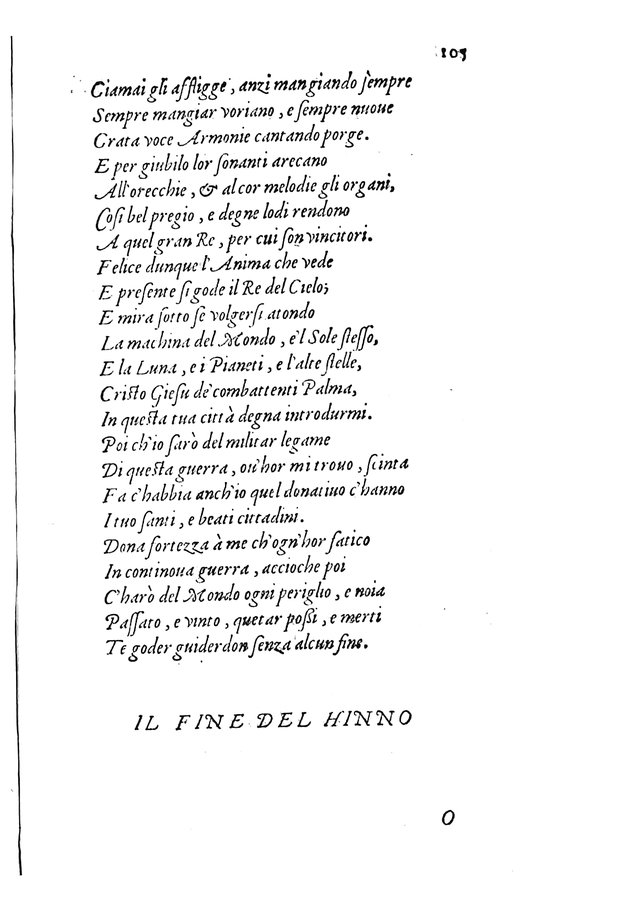 105
Ciamai gli affligge, anzi mangiando ſempre
Sempre mangiar voriano, e ſempre nuoue
Grata voce Armonie cantando porge.
E per giubilo lor ſonanti arecano
All'orecchie, & al cor melodie gli organi,
Coſi bel pregio, e degne lodi rendono
A quel gran Re, per cui ſon vincitori.
Felice dunque l'Anima che vede
E preſente ſi gode il Re del Cielo;
E mira ſotto ſe volgerſi atondo
La machina del Mondo, e'l Sole ſteſſo,
E la Luna, e i Pianeti, e l'alte ſtelle,
Criſto Gieſu de' combattenti Palma,
In queſta tua città degna introdurmi.
Poi ch'io ſarò del militar legame
Di queſta guerra, ou'hor mi trouo, ſcinta
Fa c'habbia anch'io quel donatiuo c'hanno
I tuo ſanti, e beati cittadini.
Dona fortezza à me ch'ogn'hor fatico
In continoua guerra, accioche poi
C'harò del Mondo ogni periglio, e noia
Paſſato, e vinto, quetar poſſi, e merti
Te goder guiderdon ſenza alcun fine.
IL FINE DEL HINNO
O